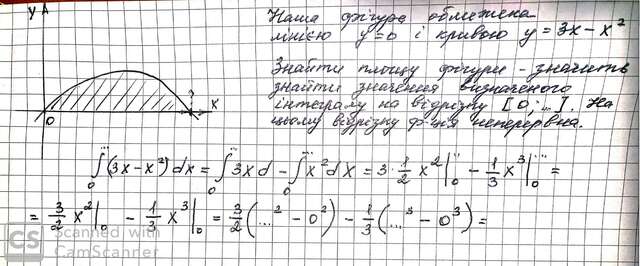 y
Наша фігура обмежена
лінією y=0 і кривою y = 3x - x²
Знайти площу фігури - значить
знайти значення визначеного
інтегралу на відрізку [0;...]. На
цьому відрізку ф-ція неперервна.
0 ? x
∫₀^… (3x - x²) dx = ∫₀^… 3x d - ∫₀^… x² dx = 3 · 1/2 x² |₀^… - 1/3 x³ |₀^… =
= 3/2 x² |₀ - 1/3 x³ |₀ = 3/2 (...² - 0²) - 1/3 (...³ - 0³) =
CS Scanned with
CamScanner